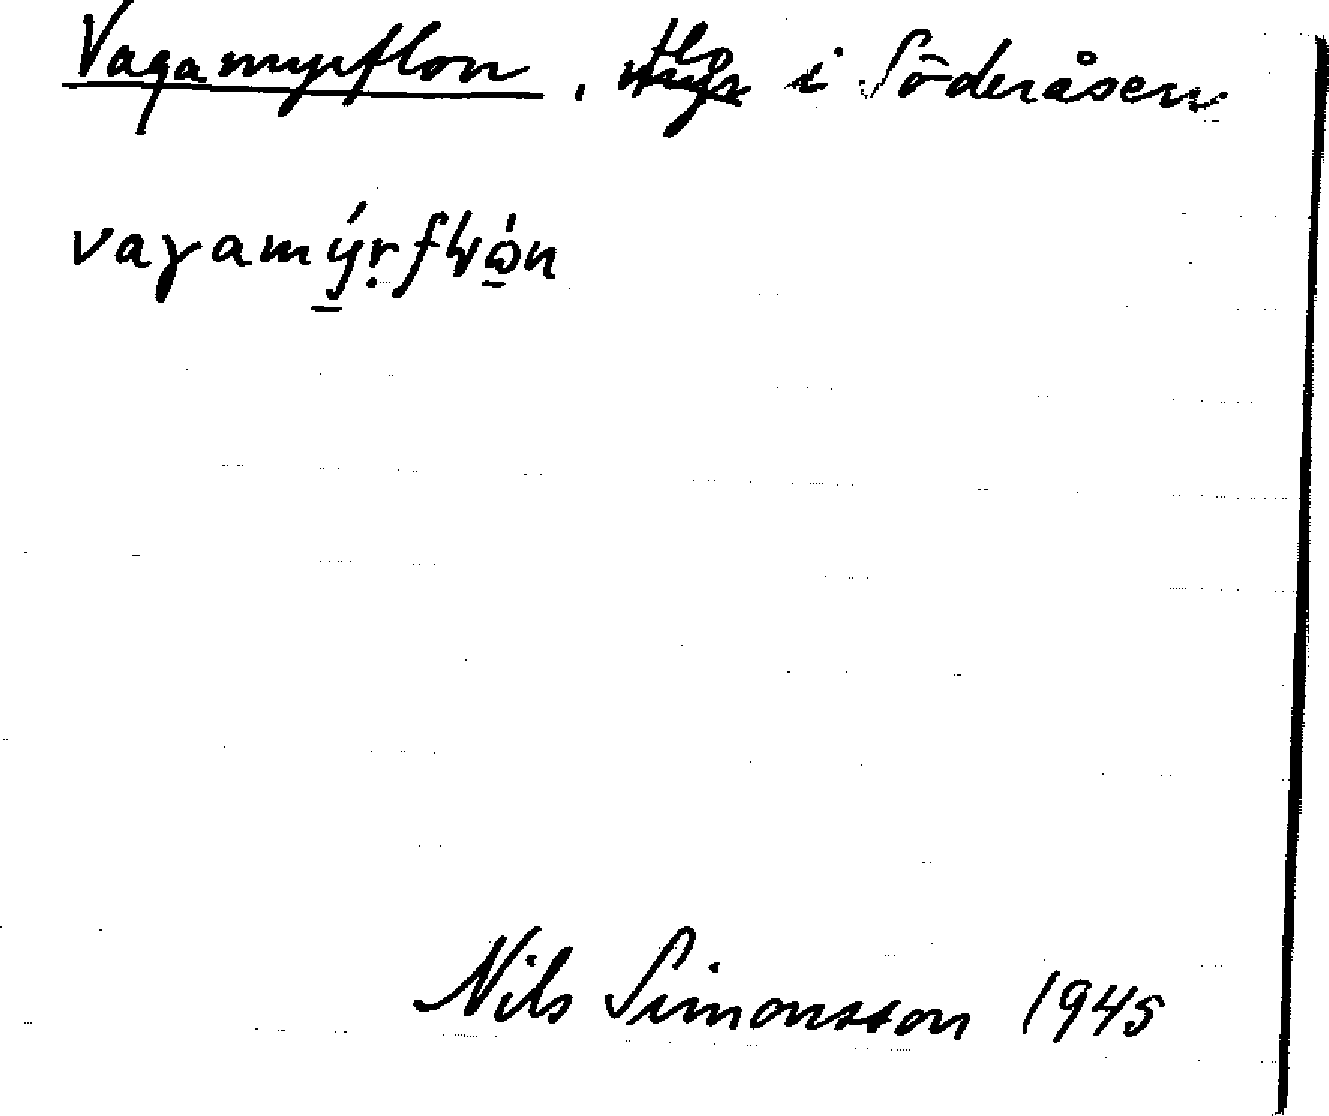 Vagamyrflon, i Söderåsen
vaγamý̱ṛfꞎὼ̱n
Nils Simonsson 1945